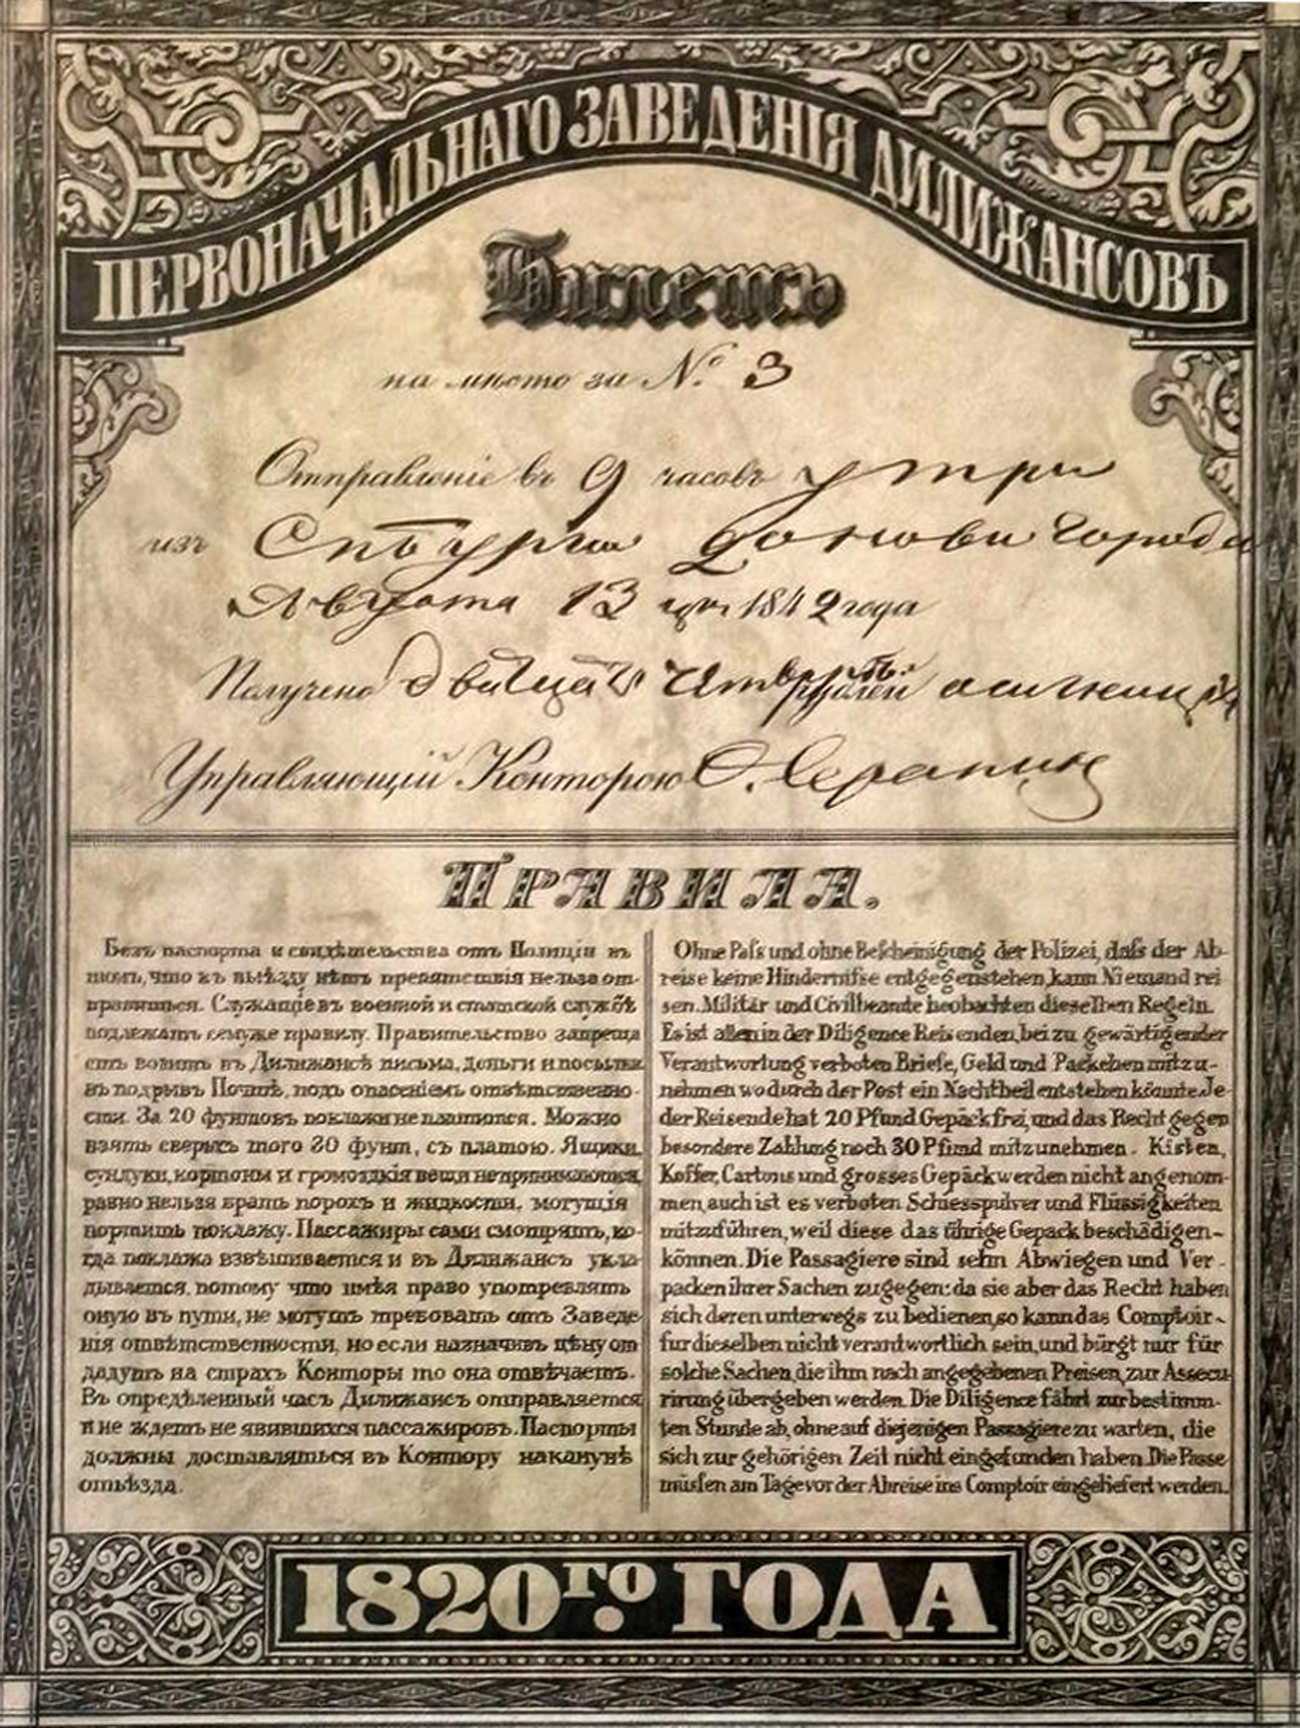 ПЕРВОНАЧАЛЬНАГО ЗАВЕДЕНІЯ ДИЛИЖАНСОВЪ
Билетъ
на мѣсто за № 3
Отправленіе въ 9 часовъ утра
изъ Спбурга до Нова города
Августа 13 дня 1842 года
Получено двадцать рублей
Управляющій Конторою
ПРАВИЛА.
Безъ паспорта и свидѣтельства отъ Полиціи въ
томъ, что къ выѣзду нѣтъ препятствія нельзя от-
правиться. Служащіе въ военной и статской службѣ
подлежатъ семуже правилу. Правительство запреща
етъ возить въ Дилижансѣ письма, деньги и посылки
въ подрывъ Почтѣ, подъ опасеніемъ отвѣтственно-
сти. За 20 фунтовъ поклажи не платится. Можно
взять сверхъ того 30 фунт, съ платою. Ящики,
сундуки, кортоны и громоздкія вещи не принимаются,
равно нельзя брать порохъ и жидкости, могущія
портить поклажу. Пассажиры сами смотрятъ, ко-
гда поклажа взвѣшивается и въ Дилижансъ укла-
дывается, потому что имѣя право употреблять
оную въ пути, не могутъ требовать отъ Заведе-
нія отвѣтственности, но если назначивъ цѣну от
дадутъ на страхъ Конторы то она отвѣчаетъ.
Въ опредѣленный часъ Дилижансъ отправляется
и не ждетъ не явившихся пассажировъ. Паспорты
должны доставляться въ Контору наканунѣ
отъѣзда.
Ohne Paſs und ohne Beſcheinigung der Polizei, daſs der Ab-
reise keine Hinderniſse entgegenstehen, kann Niemand rei
sen. Militär und Civilbeamte beobachten dieselben Regeln.
Es ist allen in der Diligence Reisenden, bei zu gewärtigender
Verantwortung verboten Briefe, Geld und Päckchen mitzu-
nehmen wodurch der Post ein Nachtheil entstehen könnte. Je-
der Reisende hat 20 Pfund Gepäck frei, und das Recht gegen
besondere Zahlung noch 30 Pfund mitzunehmen. Kisten,
Koffer, Cartons und grosses Gepäck werden nicht angenom-
men, auch ist es verboten Schiesspulver und Flüssigkeiten
mitzuführen, weil diese das übrige Gepäck beschädigen-
können. Die Passagiere sind sehn Abwiegen und Ver-
packen ihrer Sachen zugegen: da sie aber das Recht haben
sich deren unterwegs zu bedienen, so kann das Comptoir-
fur dieselben nicht verantwortlich sein, und bürgt nur für
solche Sachen, die ihm nach angegebenen Preisen, zur Assecu-
rirung übergeben werden. Die Diligence fährt zur bestimm-
ten Stunde ab, ohne auf diejenigen Passagiere zu warten, die
sich zur gehörigen Zeit nicht eingefunden haben. Die Pässe
müſsen am Tage vor der Abreise ins Comptoir eingeliefert werden.
1820го. ГОДА